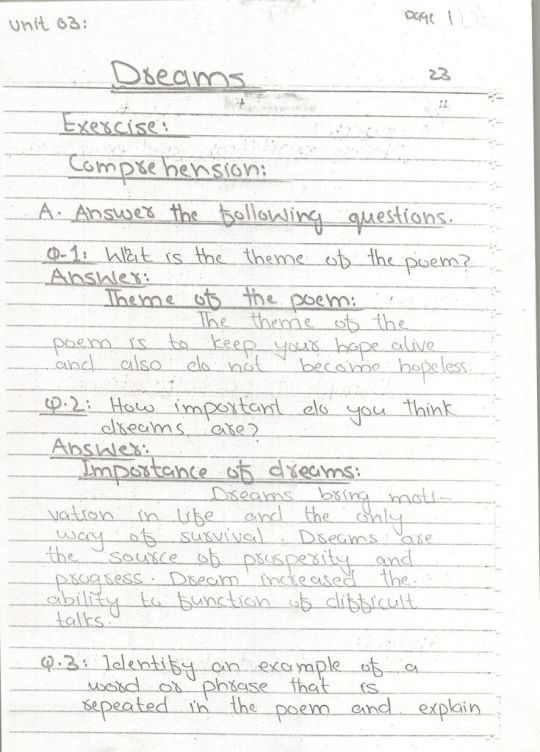 Unit 03:
Page 1
Dreams
23
11
Exercise:
Comprehension:
A. Answer the following questions.
Q-1: What is the theme of the poem?
Answer:
Theme of the poem:
The theme of the
poem is to keep your hope alive
and also do not become hopeless.
Q.2: How important do you think
dreams are?
Answer:
Importance of dreams:
Dreams bring moti-
vation in life and the only
way of survival. Dreams are
the source of prosperity and
progress. Dream increased the
ability to function of difficult
talks.
Q.3: Identify an example of a
word or phrase that is
repeated in the poem and explain